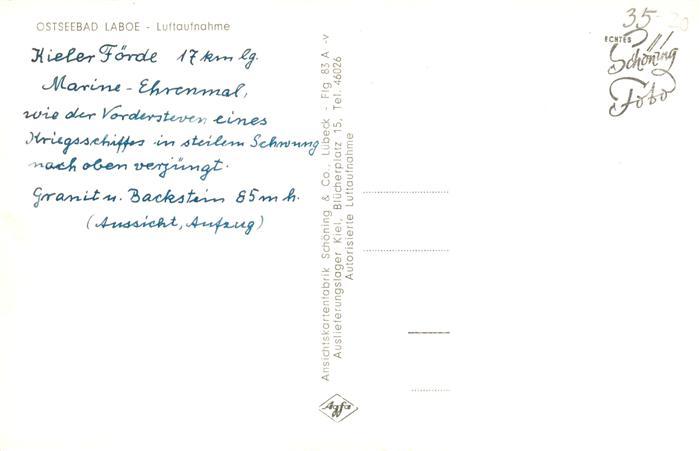 OSTSEEBAD LABOE - Luftaufnahme
Kieler Förde 17 km lg.
Marine-Ehrenmal,
wie der Vordersteven eines
Kriegsschiffes in steilem Schwung
nach oben verjüngt.
Granit u. Backstein 85 m h.
(Aussicht, Aufzug)
Ansichtskartenfabrik Schöning & Co., Lübeck - Flg 83 A -v
Auslieferungslager Kiel, Blücherplatz 15, Tel. 46026
Autorisierte Luftaufnahme
Agfa
35-20
ECHTES
Schöning
Foto